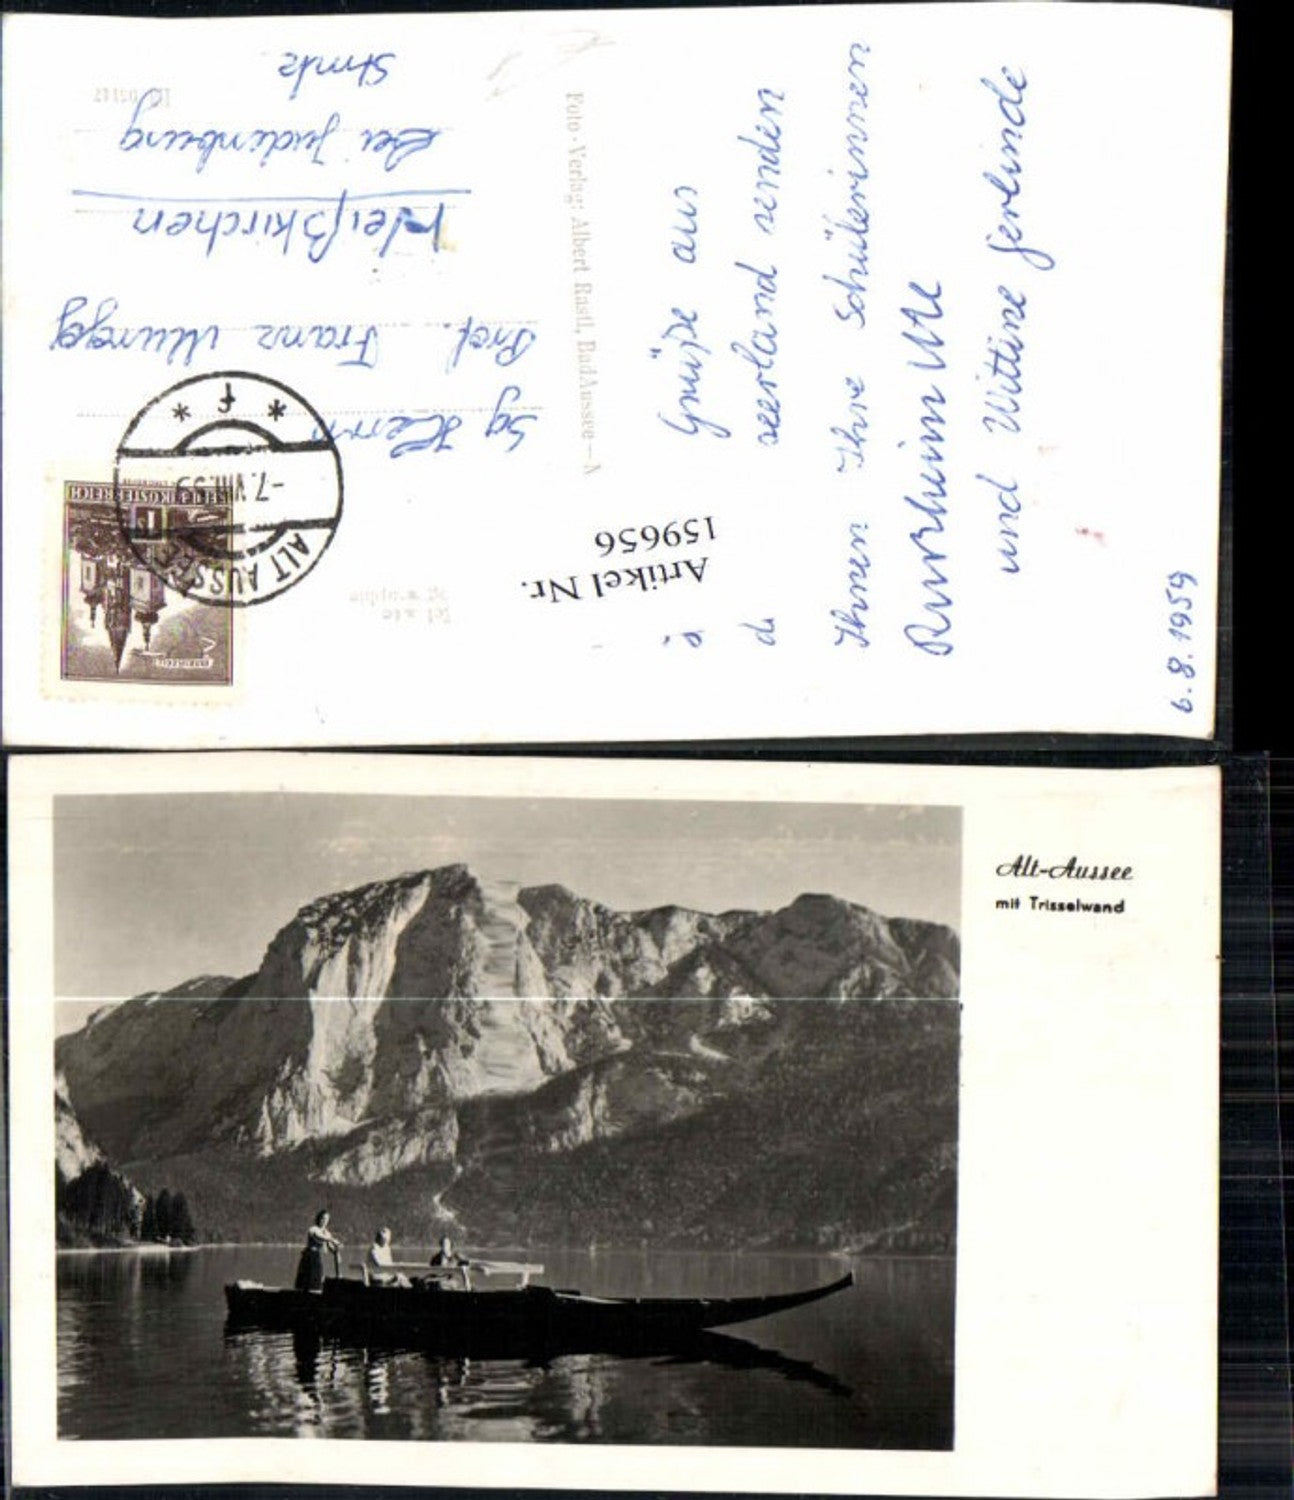 Grüße aus
seerland senden
Ihnen Ihre Schülerinnen
und Wittine Gerlinde
6. 8. 1959
Foto-Verlag: Albert Rastl, Bad Aussee — A
Artikel Nr.
159656
Sg Herrn
Prof. Franz
Weißkirchen
bei Judenburg
Stmk
ALT AUSSEE
-7. VIII. 59
* f *
REPUBLIK ÖSTERREICH
1
Alt-Aussee
mit Trisselwand